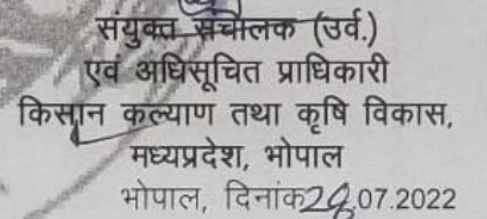 संयुक्त संचालक (उर्व.)
एवं अधिसूचित प्राधिकारी
किसान कल्याण तथा कृषि विकास,
मध्यप्रदेश, भोपाल
भोपाल, दिनांक .07.2022